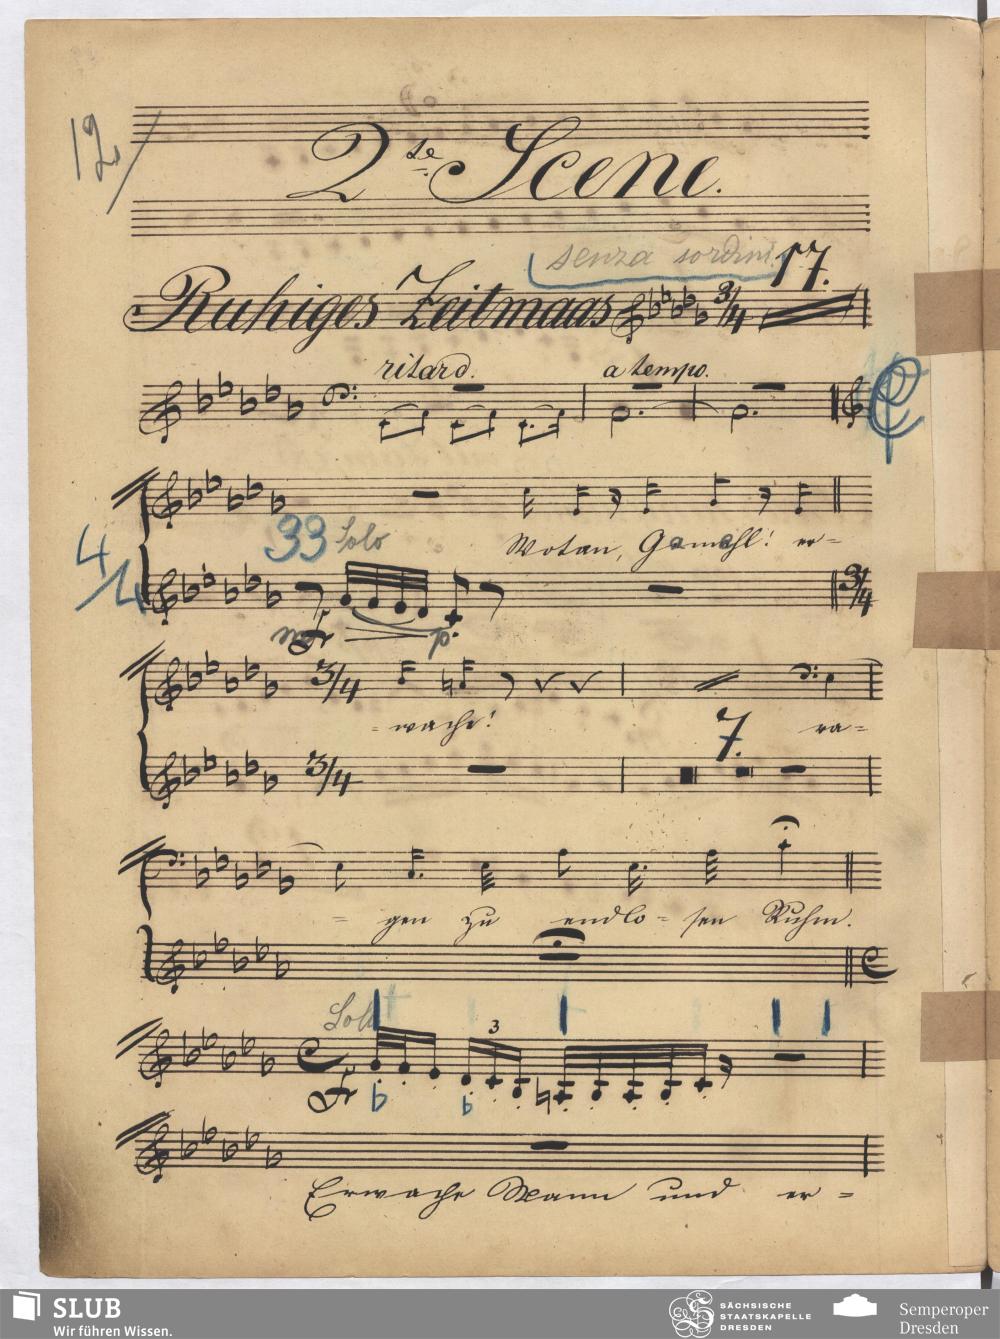 12/
2te Scene.
senza sordini
17.
Ruhiges Zeitmaas 3/4
ritard. a tempo.
33 Solo
Wotan, Gemahl! er=
4/4
3/4
mf p.
3/4
= wache!
7.
ra=
3/4
= gen zu endlo= sen Ruhm.
Solo
3
f
Erwache Mann und er=
SLUB
Wir führen Wissen.
SÄCHSISCHE
STAATSKAPELLE
DRESDEN
Semperoper
Dresden